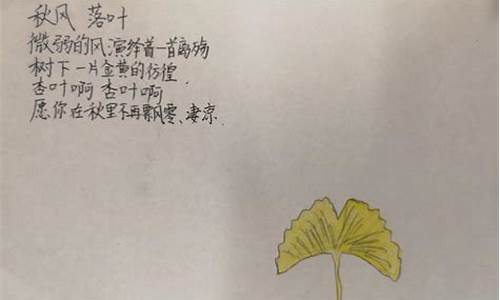 秋风 落叶
微弱的风演绎着一首离殇
树下一片金黄的彷徨
杏叶啊 杏叶啊
愿你在秋里不再飘零、凄凉.